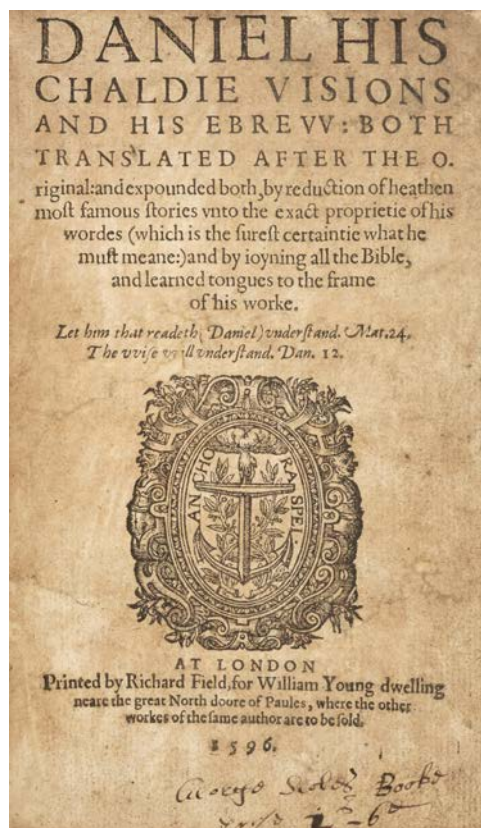 DANIEL HIS
CHALDIE VISIONS
AND HIS EBREVV: BOTH
TRANSLATED AFTER THE O.
riginal: and expounded both, by reduction of heathen
moſt famous ſtories vnto the exact proprietie of his
wordes (which is the ſureſt certaintie what he
muſt meane:) and by ioyning all the Bible,
and learned tongues to the frame
of his worke.
Let him that readeth, Daniel) vnderſtand. Mat. 24.
The vviſe vvill vnderſtand. Dan. 12.
ANCHORA SPEI.
AT LONDON
Printed by Richard Field, for William Young dwelling
neare the great North doore of Paules, where the other
workes of the ſame author are to be ſold.
1596.
George Booke